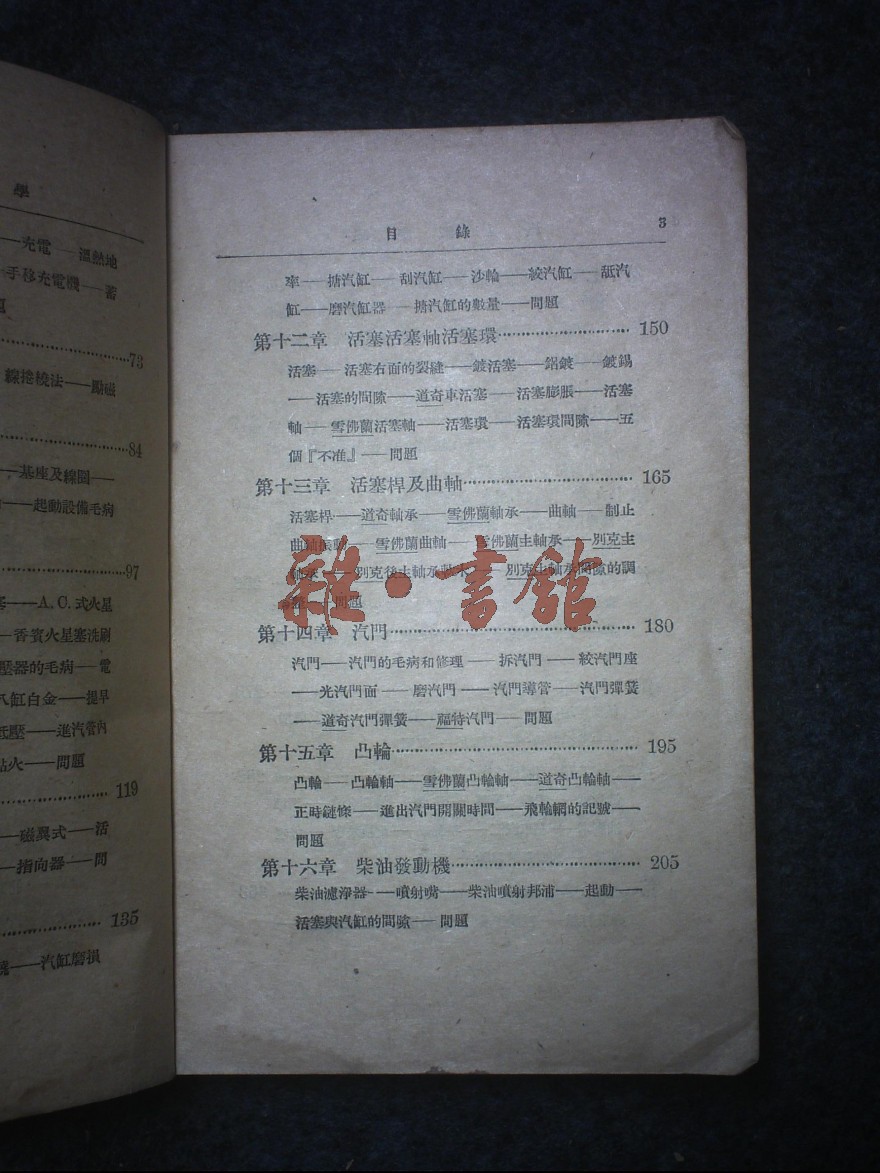 學
——充電——溫熱地
手移充電機——蓄
題
73
線捲繞法——勵磁
84
——基座及線圈——
——起動設備毛病
97
塞——A.C.式火星
——香賓火星塞洗刷
壓器的毛病——電
八缸白金——提早
低壓——進汽管內
點火——問題
119
——磁翼式——活
——指向器——問
135
——汽缸磨損
目錄 3
率——搪汽缸——刮汽缸——沙輪——絞汽缸——舐汽
缸——磨汽缸器——搪汽缸的數量——問題
第十二章 活塞活塞軸活塞環 150
活塞——活塞右面的裂縫——鍍活塞——鋁鍍——鍍錫
——活塞的間隙——道奇車活塞——活塞膨脹——活塞
軸——雪佛蘭活塞軸——活塞環——活塞環間隙——五
個『不准』——問題
第十三章 活塞桿及曲軸 165
活塞桿——道奇軸承——雪佛蘭軸承——曲軸——制止
曲軸振動——雪佛蘭曲軸——雪佛蘭主軸承——別克主
軸承——別克後主軸承——別克主軸承間隙的調
問題
第十四章 汽門 180
汽門——汽門的毛病和修理——拆汽門——絞汽門座
——光汽門面——磨汽門——汽門導管——汽門彈簧
——道奇汽門彈簧——福特汽門——問題
第十五章 凸輪 195
凸輪——凸輪軸——雪佛蘭凸輪軸——道奇凸輪軸——
正時鏈條——進出汽門開關時間——飛輪網的記號——
問題
第十六章 柴油發動機 205
柴油濾淨器——噴射嘴——柴油噴射邦浦——起動——
活塞與汽缸的間隙——問題
雜·書館